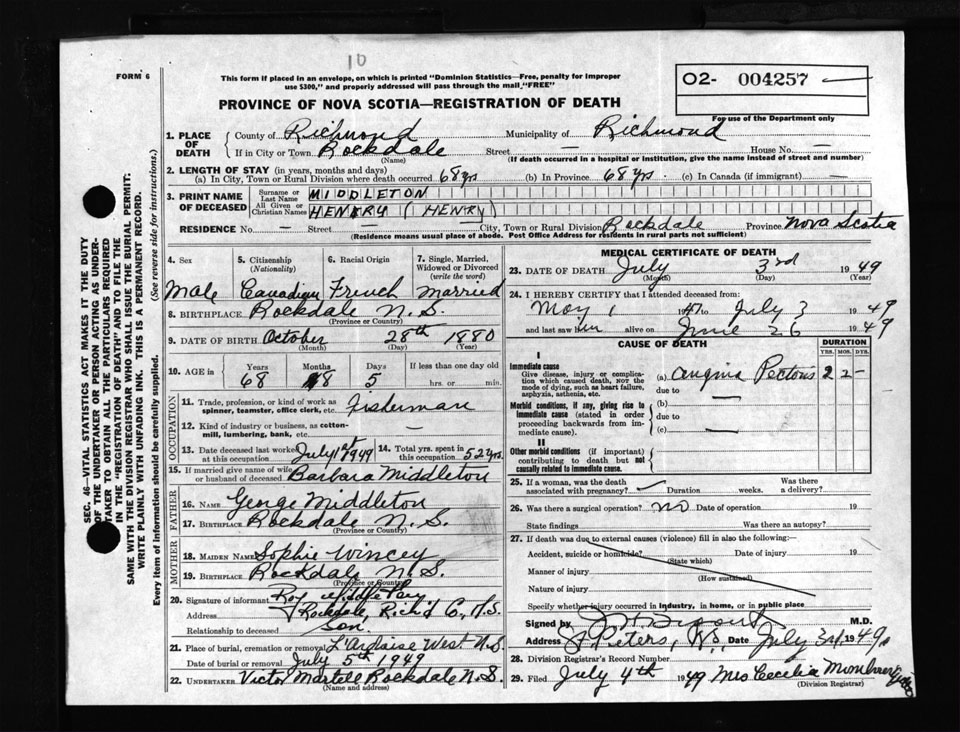 10
FORM 6
This form if placed in an envelope, on which is printed "Dominion Statistics—Free, penalty for improper
use $300," and properly addressed will pass through the mail "FREE"
O2- 004257
For use of the Department only
PROVINCE OF NOVA SCOTIA—REGISTRATION OF DEATH
1. PLACE OF DEATH
County of Richmond Municipality of Richmond
If in City or Town Rockdale Street — House No. —
(Name) (If death occurred in a hospital or institution, give the name instead of street and number)
2. LENGTH OF STAY (in years, months and days)
(a) In City, Town or Rural Division where death occurred 68 yrs (b) In Province 68 yrs. (c) In Canada (if immigrant) —
3. PRINT NAME OF DECEASED
Surname or Last Name MIDDLETON
All Given or Christian Names HENRRY (HENRY)
RESIDENCE No. — Street — City, Town or Rural Division Rockdale Province Nova Scotia
(Residence means usual place of abode. Post Office Address for residents in rural parts not sufficient)
4. Sex 5. Citizenship (Nationality) 6. Racial Origin 7. Single, Married, Widowed or Divorced (write the word)
Male Canadian French Married
8. BIRTHPLACE Rockdale N.S.
(Province or Country)
9. DATE OF BIRTH October 28th 1880
(Month) (Day) (Year)
10. AGE in Years Months Days If less than one day old
68 8 5 hrs. or min.
OCCUPATION
11. Trade, profession, or kind of work as spinner, teamster, office clerk, etc. Fisherman
12. Kind of industry or business, as cotton-mill, lumbering, bank, etc. —
13. Date deceased last worked at this occupation July 1st 1949 14. Total yrs. spent in this occupation 52 yrs.
15. If married give name of wife or husband of deceased Barbara Middleton
FATHER
16. Name George Middleton
17. Birthplace Rockdale N.S.
(Province or Country)
MOTHER
18. MAIDEN NAME Sophie Wincey
19. Birthplace Rockdale N.S.
(Province or Country)
20. Signature of informant Roy Middleton
Address Rockdale, Rich'd Co, N.S.
Relationship to deceased Son.
21. Place of burial, cremation or removal L'Ardoise West N.S.
Date of burial or removal July 5th 1949
22. UNDERTAKER Victor Martell Rockdale N.S.
(Name and address)
MEDICAL CERTIFICATE OF DEATH
23. DATE OF DEATH July 3rd 1949
(Month) (Day)
24. I HEREBY CERTIFY that I attended deceased from:
May 1 1947 to July 3 1949
and last saw him alive on June 26 1949
CAUSE OF DEATH
DURATION
YRS. MOS. DYS.
I
Immediate cause
Give disease, injury or complication which caused death, NOT the mode of dying, such as heart failure, asphyxia, asthenia, etc.
(a) Angina Pectoris 2 2 -
due to
Morbid conditions, if any, giving rise to immediate cause (stated in order proceeding backwards from immediate cause).
(b) —
due to
(c) —
II
Other morbid conditions (if important) contributing to death but not causally related to immediate cause.
25. If a woman, was the death associated with pregnancy? Duration weeks. Was there a delivery?
26. Was there a surgical operation? no Date of operation 19
State findings Was there an autopsy?
27. If death was due to external causes (violence) fill in also the following:—
Accident, suicide or homicide? Date of injury 19
(State which)
Manner of injury
(How sustained)
Nature of injury
Specify whether injury occurred in industry, in home, or in public place
Signed by M.D.
Address St Peters, N.S. Date July 3rd 1949
28. Division Registrar's Record Number
29. Filed July 4th 1949 Mrs Cecilia
(Division Registrar)
SEC. 46—VITAL STATISTICS ACT MAKES IT THE DUTY
OF THE UNDERTAKER OR PERSON ACTING AS UNDER-
TAKER TO OBTAIN ALL THE PARTICULARS REQUIRED
IN THE "REGISTRATION OF DEATH" AND TO FILE THE
SAME WITH THE DIVISION REGISTRAR WHO SHALL ISSUE THE BURIAL PERMIT.
WRITE PLAINLY WITH UNFADING INK. THIS IS A PERMANENT RECORD.
Every item of information should be carefully supplied. (See reverse side for instructions.)